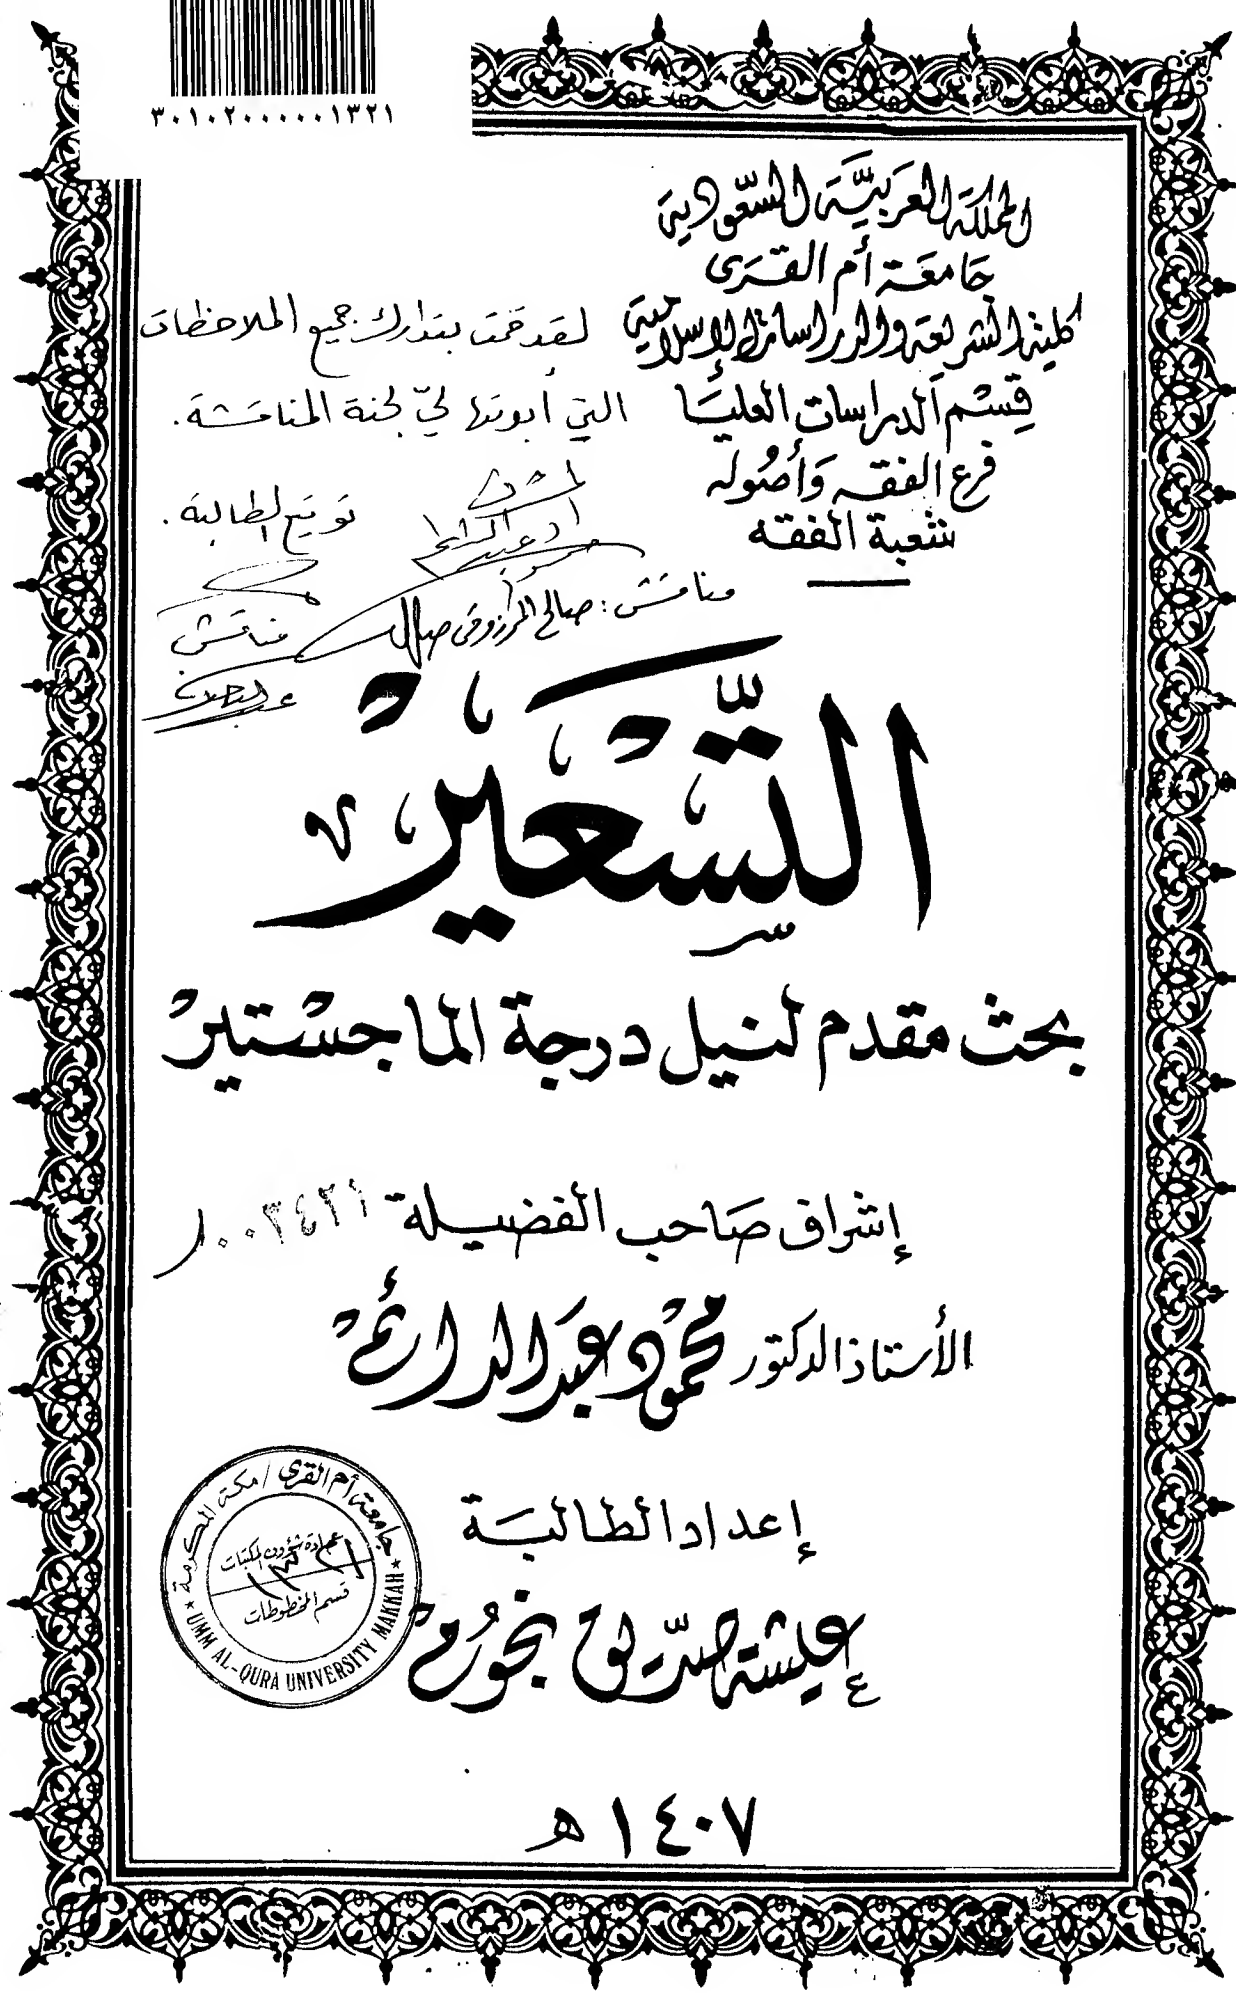 ٣٠١٠٢٠٠٠٠٠١٣٢١
المملكة العربيَّة السّعودية
جَامعَة أم القرى
كلية الشريعة والدراسات الإسلامية
قِسْم الدراسات العليَا
فرع الفقه وَأصُوله
شعبة الفقه
لقد قمت بتدارك جميع الملاحظات
التي أبدتها لي لجنة المناقشة.
توقيع الطالبة.
المشرف
أ.د عبد الدائم
مناقش: صالح المرزوقي
مناقش
التّسْعيرْ
بحث مقدم لنيل درجة الماجسْتيرْ
إشراف صَاحب الفضيلة
١٠٠٣٤٢١
الأستاذ الدكتور محمْود عبَد الدائمْ
إعداد الطالبَة
عيشة صدّيق نجُومْ
جامعة أم القرى / مكة المكرمة
عمادة شؤون المكتبات
قسم المخطوطات
UMM AL-QURA UNIVERSITY MAKKAH
١٤٠٧ هـ